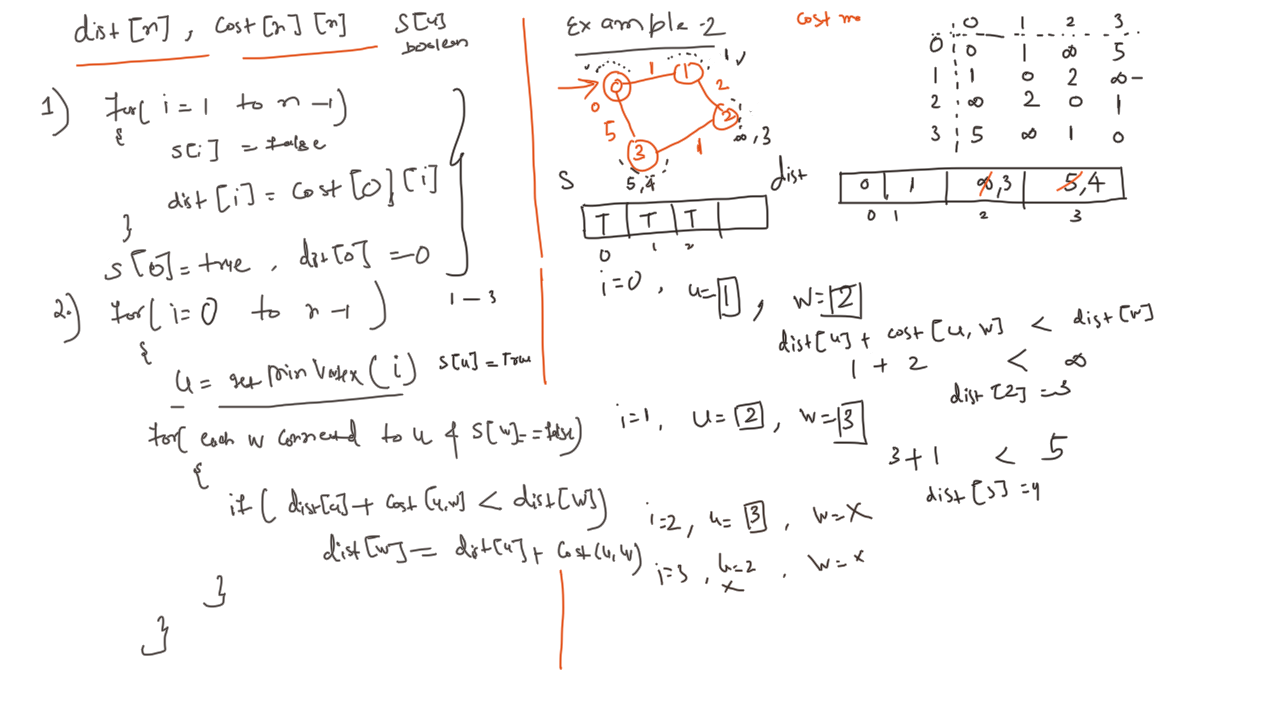 dist[n], cost[n][n] S[u]
boolean
1) for( i = 1 to n-1)
{
S[i] = false
dist[i] = cost[0][i]
}
S[0] = true, dist[0] = 0
1 - 3
2) for( i = 0 to n-1 )
{
u = getMinVertex(i) S[u] = True
for( each w connected to u & S[w] == false)
{
if( dist[u] + cost[u,w] < dist[w])
dist[w] = dist[u] + cost(u,w)
}
}
Example-2
0 1 2 3
0 1 2 5 1
1
∞,3
5,4
S
T T T
0 1 2
cost m
0 1 2 3
0 0 1 ∞ 5
1 1 0 2 ∞
2 ∞ 2 0 1
3 5 ∞ 1 0
dist
0 1 ∞,3 5,4
0 1 2 3
i=0, u=1, w=2
dist[u] + cost[u,w] < dist[w]
1 + 2 < ∞
dist[2] = 3
i=1, u=2, w=3
3+1 < 5
dist[3] = 4
i=2, u=3, w=X
i=3, u=2, w=x
x